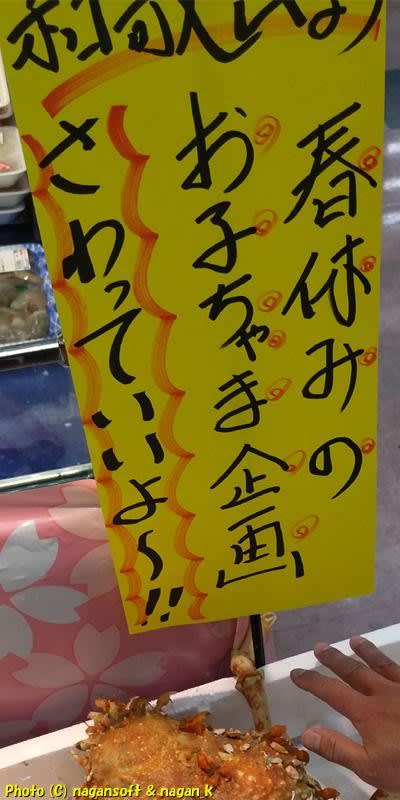 春休みの
お子ちゃま企画
さわっていいよ〜!!
Photo (C) nagansoft & nagan k